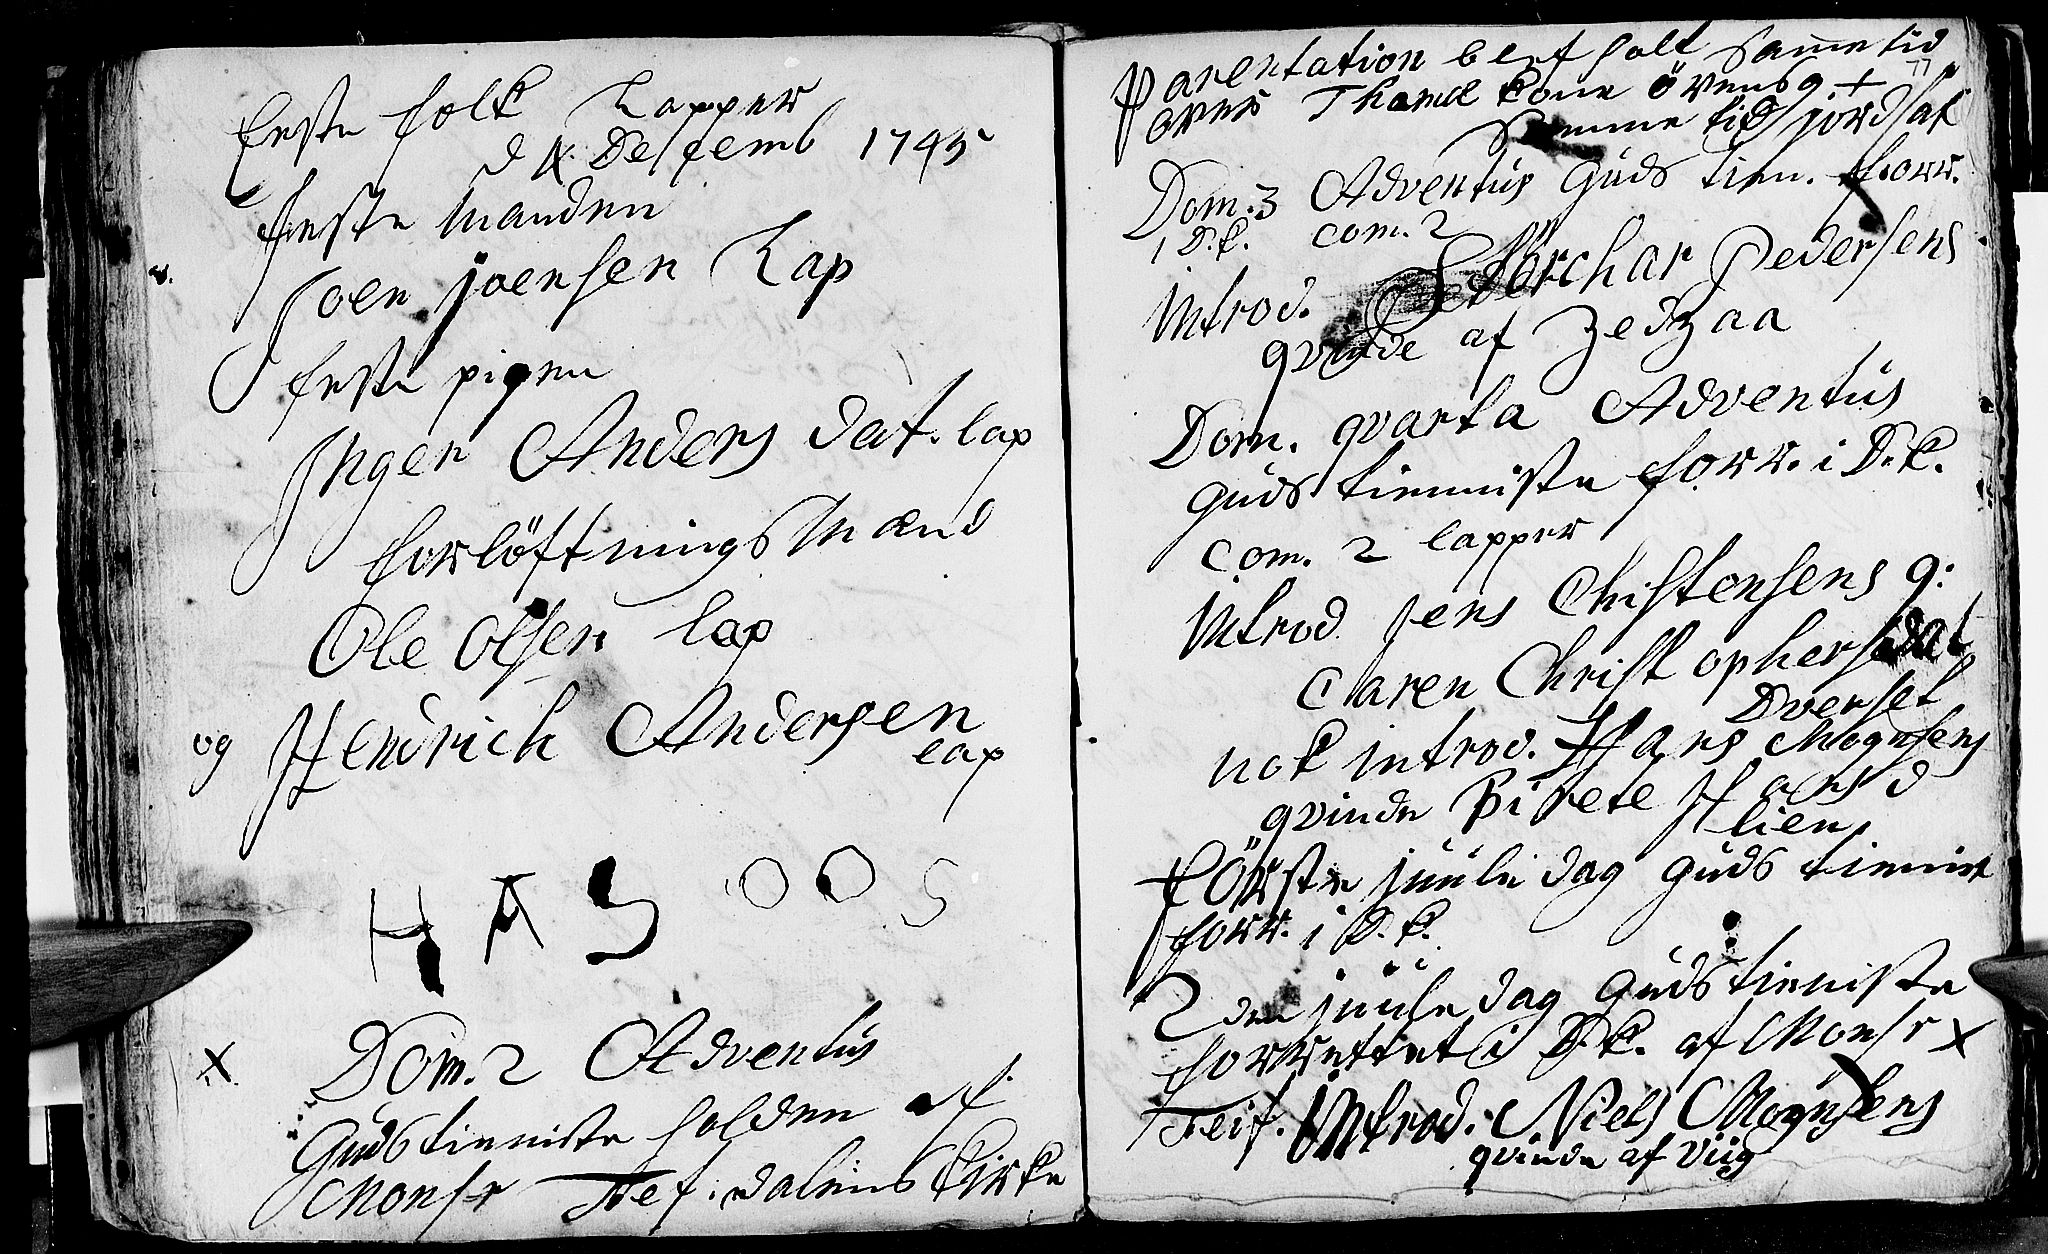 feste folk Lapper
d 4 Descemb 1745
feste Manden
Joen joensen Lap
feste pigen
Inger Anders dat. lap
forløftnings Mænd
Ole Olsen lap
og Hendrich Andersen
lap
H A S O O S
X Dom. 2 Adventus
Gudstienniste holden af
Monsr Tref. i dalens Kirke
77
Parentation blef holt samme tid
over kone
Samme tid jordsat
Dom. 3 Adventus Guds tien. forr.
i D.k. com. 2
Introd. Størchar Pedersens
qvinde af Zedzaa
Dom. qvarta Adventus
guds tienniste forr. i D.k.
Com. 2 lapper
Introd Jens Christensens q:
Caren Christophersdat
Dverset
nok introd. Hans Mogensens
qvinde Birete Hans d
lien
første juule dag guds tiennist
forr. i D.k.
2 den juule dag Guds tienniste
forrettet i D.k. af Monsr X
Introd. Niels Mognsens
qvinde af Viig